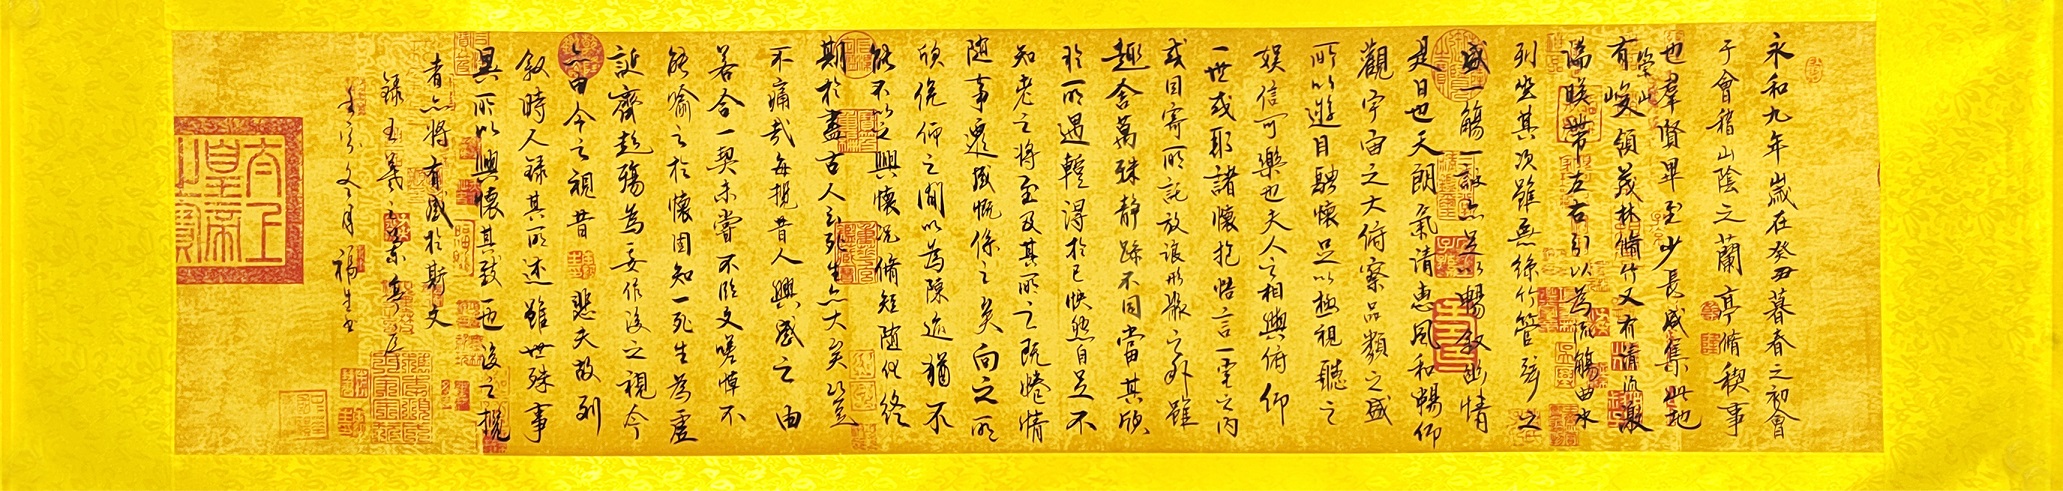 永和九年歲在癸丑暮春之初會
于會稽山陰之蘭亭脩稧事
也羣賢畢至少長咸集此地
有崇山峻領茂林脩竹又有清流激
湍暎帶左右引以為流觴曲水
列坐其次雖無絲竹管弦之
盛一觴一詠亦足以暢敘幽情
是日也天朗氣清惠風和暢仰
觀宇宙之大俯察品類之盛
所以遊目騁懷足以極視聽之
娛信可樂也夫人之相與俯仰
一世或取諸懷抱悟言一室之內
或因寄所託放浪形骸之外雖
趣舍萬殊靜躁不同當其欣
於所遇暫得於己快然自足不
知老之將至及其所之既惓情
隨事遷感慨係之矣向之所
欣俛仰之閒以為陳迹猶不
能不以之興懷況脩短隨化終
期於盡古人云死生亦大矣豈
不痛哉每攬昔人興感之由
若合一契未嘗不臨文嗟悼不
能喻之於懷固知一死生為虛
誕齊彭殤為妄作後之視今
亦由今之視昔悲夫故列
敘時人錄其所述雖世殊事
異所以興懷其致一也後之攬
者亦將有感於斯文
錄王羲之蘭亭序
太上皇帝之寶